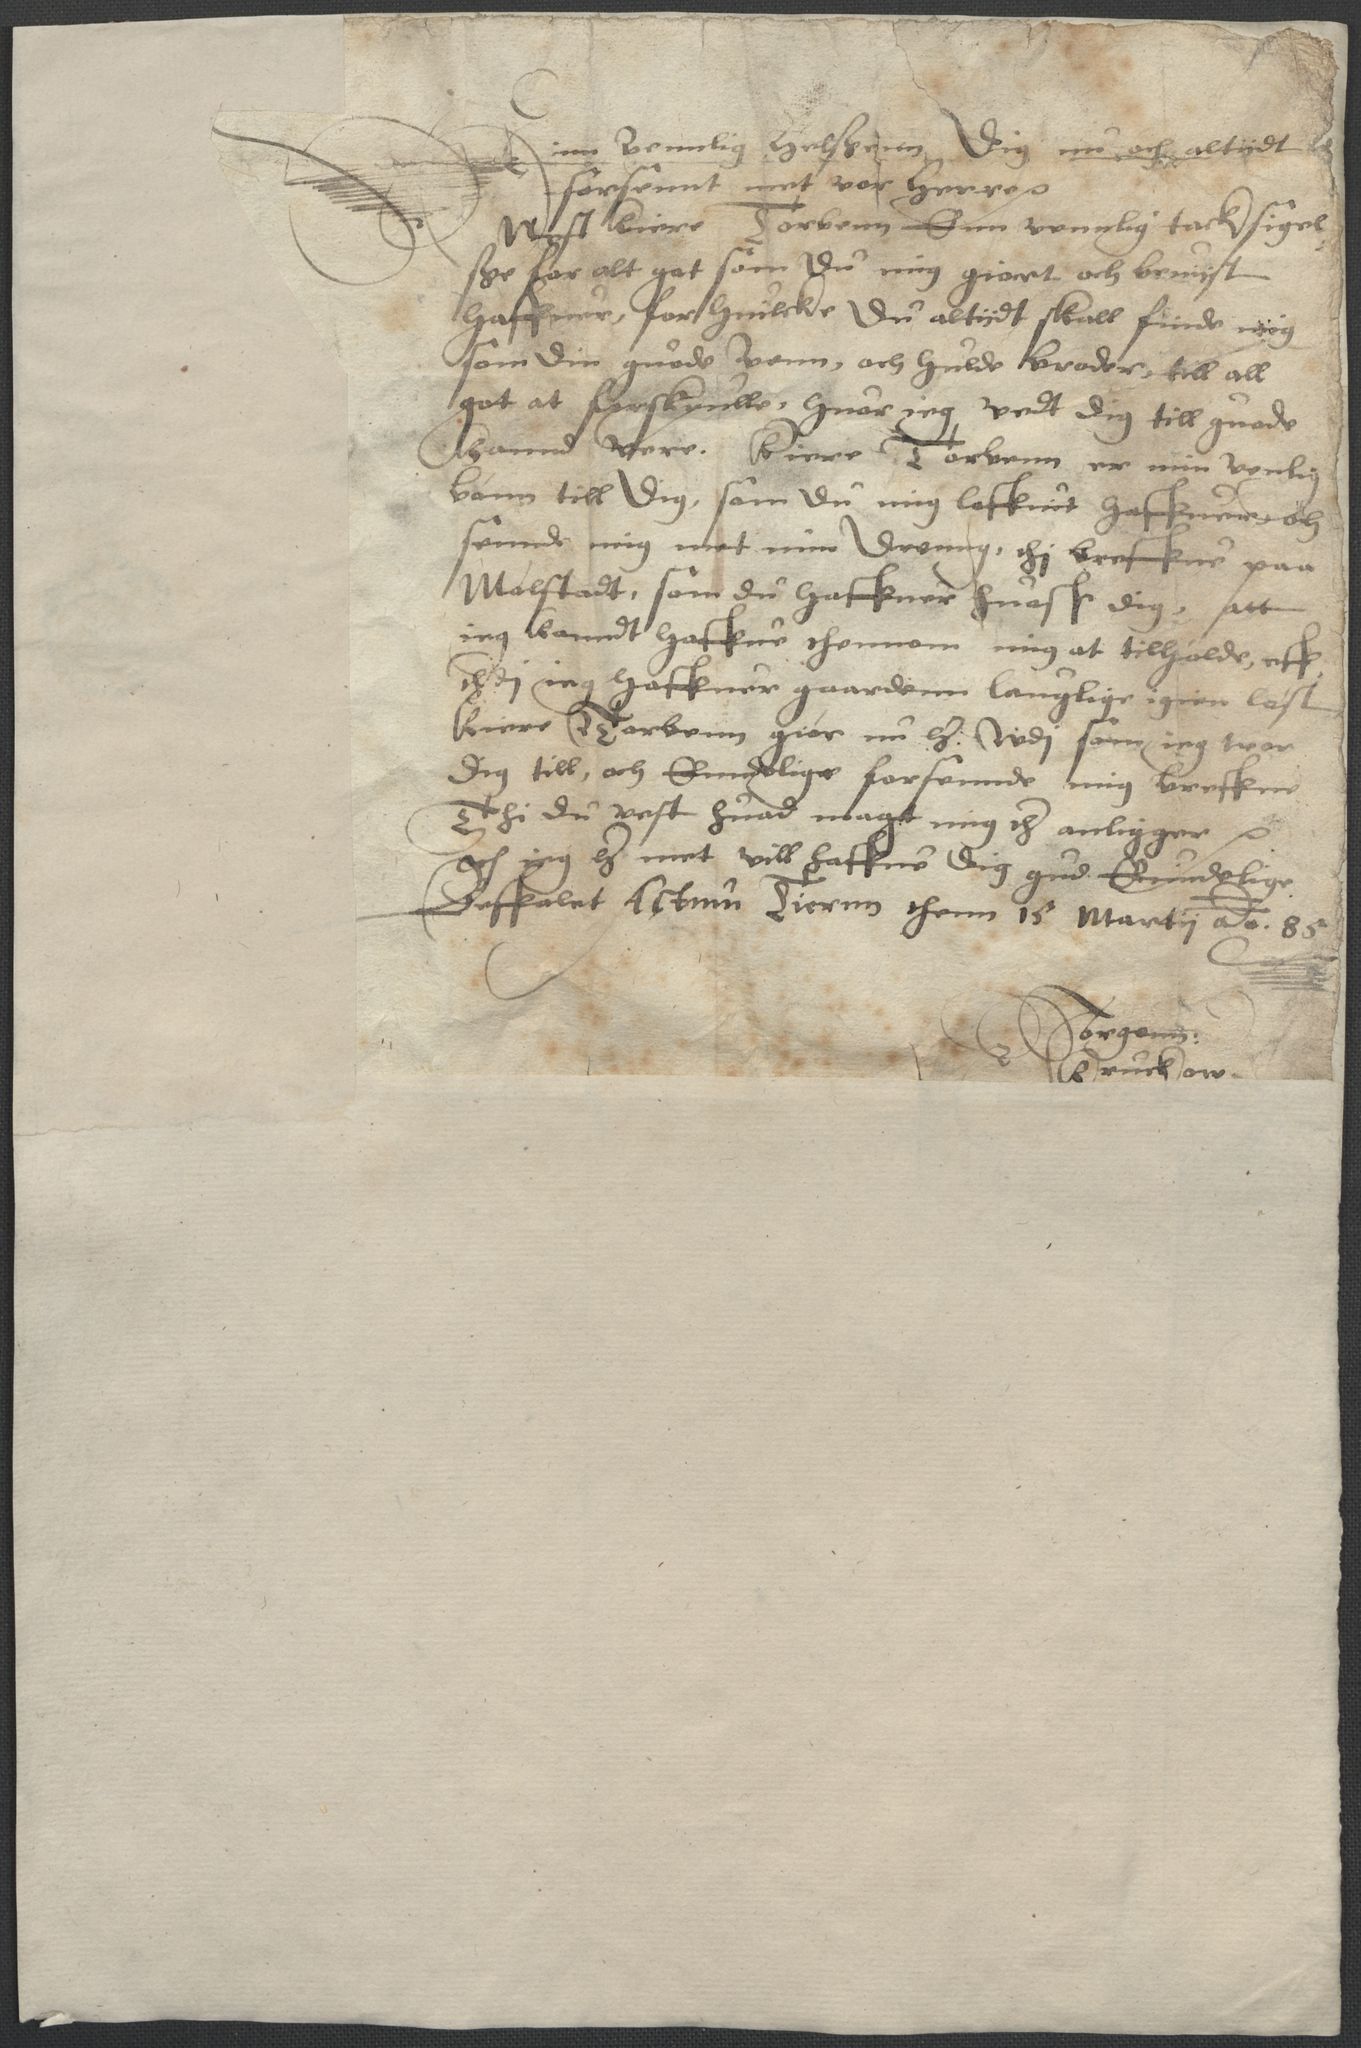 Min Vennlig Helszenn Dig nu och altiidt
forsennt met vor Herre
Nest kiere Torbenn Enn vennlig tacksigel-
sze for alt got som Du mig giortt och beuijst
Haffuer, for Huilcke Du altiidt skall finde mig
som Din guode Venn, och Hulde broder, till all
got at forskyulle, Huor ieg vedt Dig till guode
kannd vere. Kiere Torbenn er min Venlig
bønn till Dig, som Du mig loffuit Haffuer, och
sennde mig met min Dreng, thj breffue paa
Molstadt, som du Haffuer huosz dig, att
ieg kanndt Haffue thennom mig at tilholde, eff-
thrdj ieg Haffuer gaardenn lauglige igien løst
Kiere Torbenn giør nu hr: Vdj som ieg troer
Dig till, och Enndelige forsennde mig breffue
Thi du vest huad magt mig thr anligger
och ieg hr met vill haffue Dig gud Enndelige
Beffalet Actum Tiernn thenn 15 Martij Ao. 85
Jørgenn:
Bruckow.